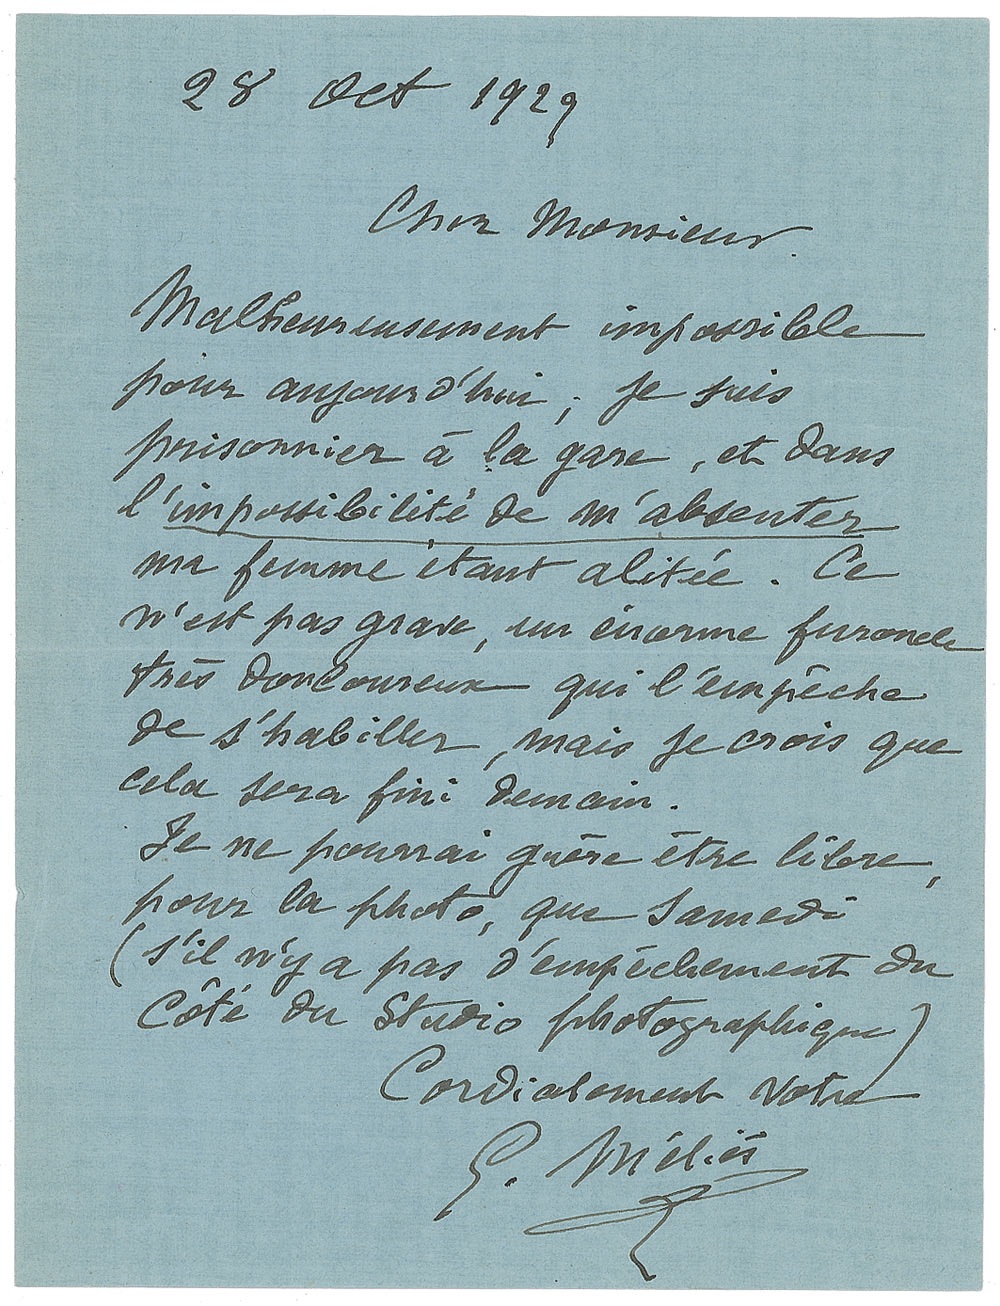 28 Oct 1929
Cher Monsieur.
Malheureusement impossible
pour aujourd'hui ; je suis
prisonnier à la gare, et dans
l'impossibilité de m'absenter
ma femme étant alitée. Ce
n'est pas grave, un énorme furoncle
très douloureux qui l'empêche
de s'habiller, mais je crois que
cela sera fini demain.
Je ne pourrai guère être libre,
pour la photo, que Samedi
(s'il n'y a pas d'empêchement du
côté du Studio photographique)
Cordialement votre
G. Méliès